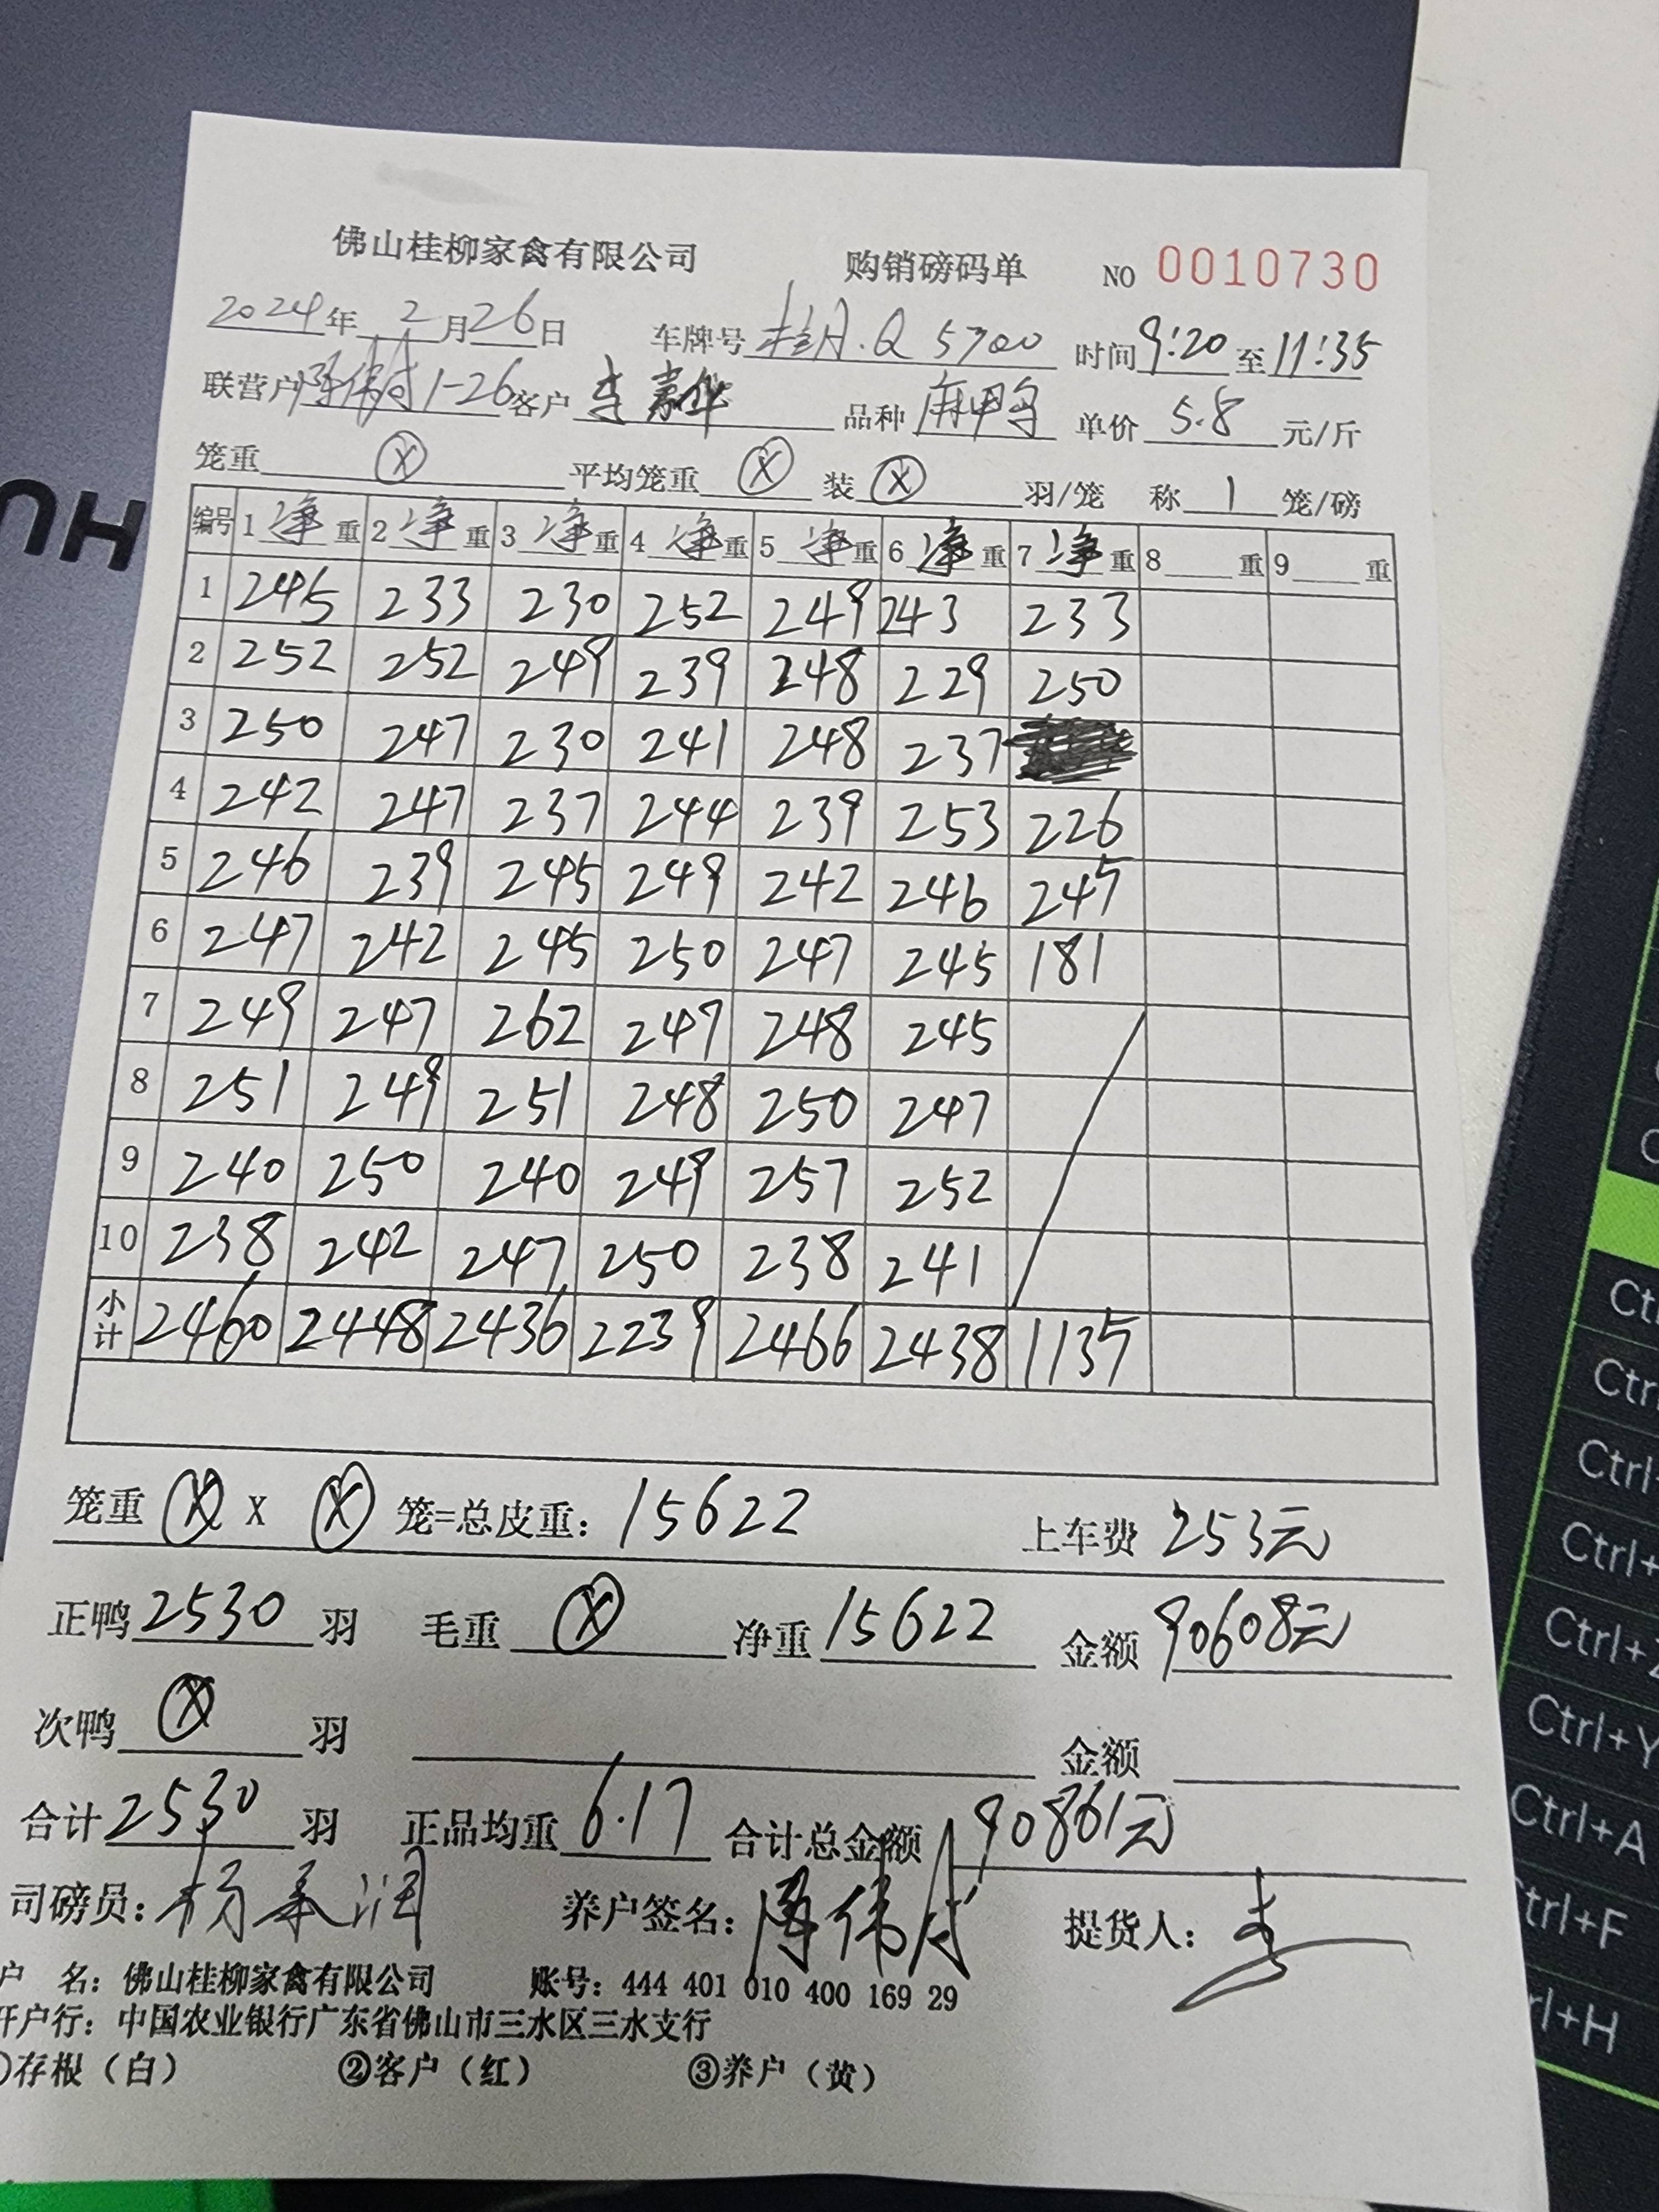 佛山桂柳家禽有限公司 购销磅码单 NO 0010730
2024年 2月26日 车牌号 Q 5700 时间9:20至11:35
联营户 1-26 客户 李 品种 麻鸭 单价 5.8 元/斤
笼重 ⓧ 平均笼重 ⓧ 装 ⓧ 羽/笼 称 1 笼/磅
编号 1净重 2净重 3净重 4净重 5净重 6净重 7净重 8 重 9 重
1 245 233 230 252 249 243 233
2 252 252 249 239 248 229 250
3 250 247 230 241 248 237
4 242 247 237 244 239 253 226
5 246 239 245 249 242 246 245
6 247 242 245 250 247 245 181
7 249 247 262 247 248 245
8 251 249 251 248 250 247
9 240 250 240 249 257 252
10 238 242 247 250 238 241
小计 2460 2448 2436 2239 2466 2438 1135
笼重 ⓧ X ⓧ 笼=总皮重: 15622 上车费 253元
正鸭 2530 羽 毛重 ⓧ 净重 15622 金额 90608元
次鸭 ⓧ 羽 金额
合计 2530 羽 正品均重 6.17 合计总金额 90861元
司磅员: 杨 润 养户签名: 伟 提货人: 李
户 名: 佛山桂柳家禽有限公司 账号: 444 401 010 400 169 29
开户行: 中国农业银行广东省佛山市三水区三水支行
①存根（白） ②客户（红） ③养户（黄）
Ctrl+Y
Ctrl+A
Ctrl+F